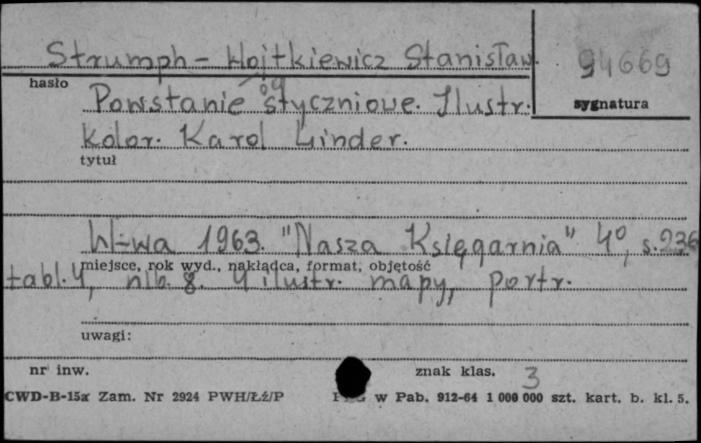 Strumph-Wojtkiewicz Stanisław.
94669
hasło
sygnatura
Powstanie styczniowe. Ilustr.
kolor. Karol Linder.
tytuł
W-wa 1963. "Nasza Księgarnia" 4°, s. 236
miejsce, rok wyd., nakładca, format, objętość
tabl. 4, nlb. 8. ilustr. mapy, portr.
uwagi:
nr inw.
znak klas. 3
CWD-B-15a Zam. Nr 2924 PWH/Łź/P
w Pab. 912-64 1 000 000 szt. kart. b. kl. 5.